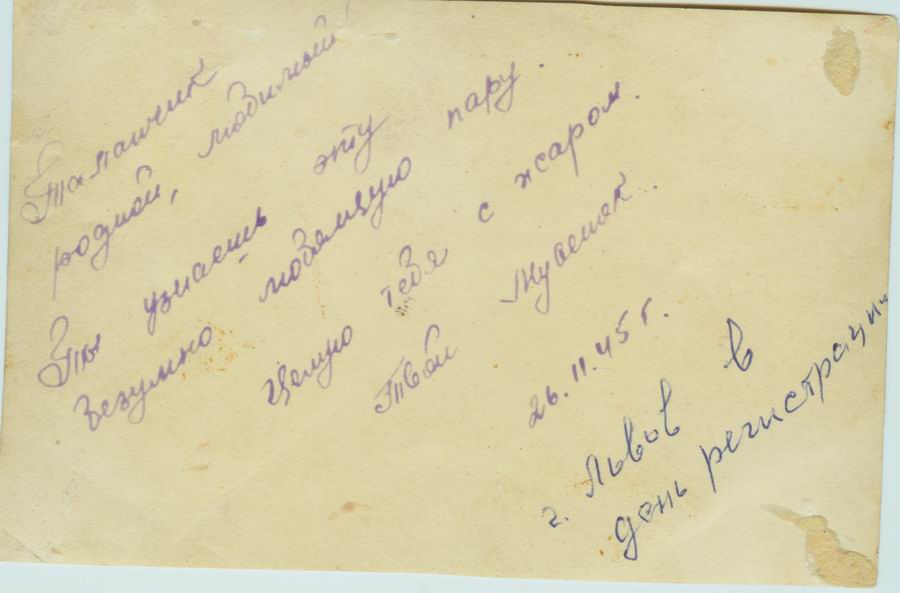 Томапчик
родной, любимый!
Ты узнаешь эту пару.
Безумно любящую
Целую тебя с жаром.
Твой Мусенок.
26.11.45 г.
г. Львов в
день регистрации